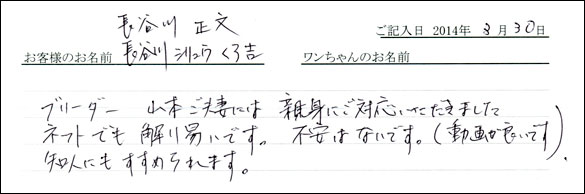 長谷川 正文
ご記入日 2014年 8月30日
お客様のお名前 長谷川 シリュウ くろ吉
ワンちゃんのお名前
ブリーダー 山本ご夫妻には 親身にご対応いただきまして
ネットでも 解り易いです。 不安はないです。(動画が良いです)
知人にも すすめられます。